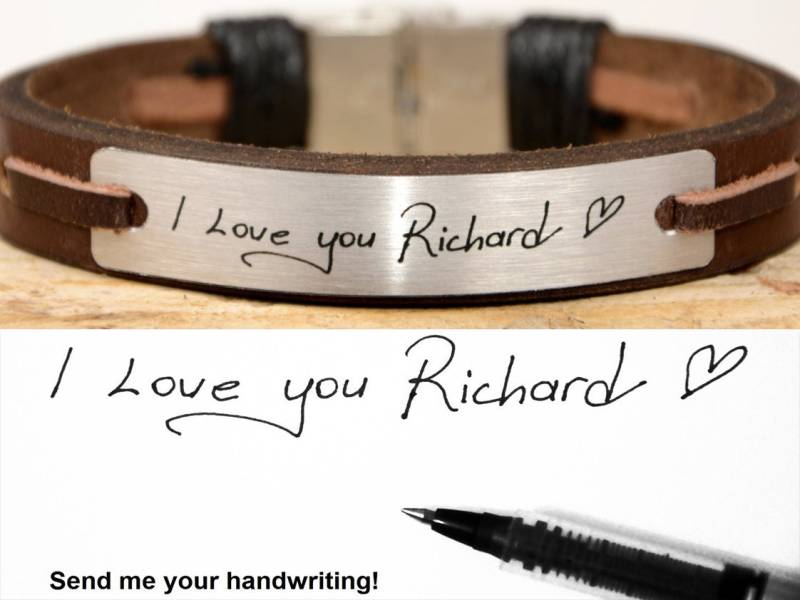 I Love you Richard ♡
I Love you Richard ♡
Send me your handwriting!